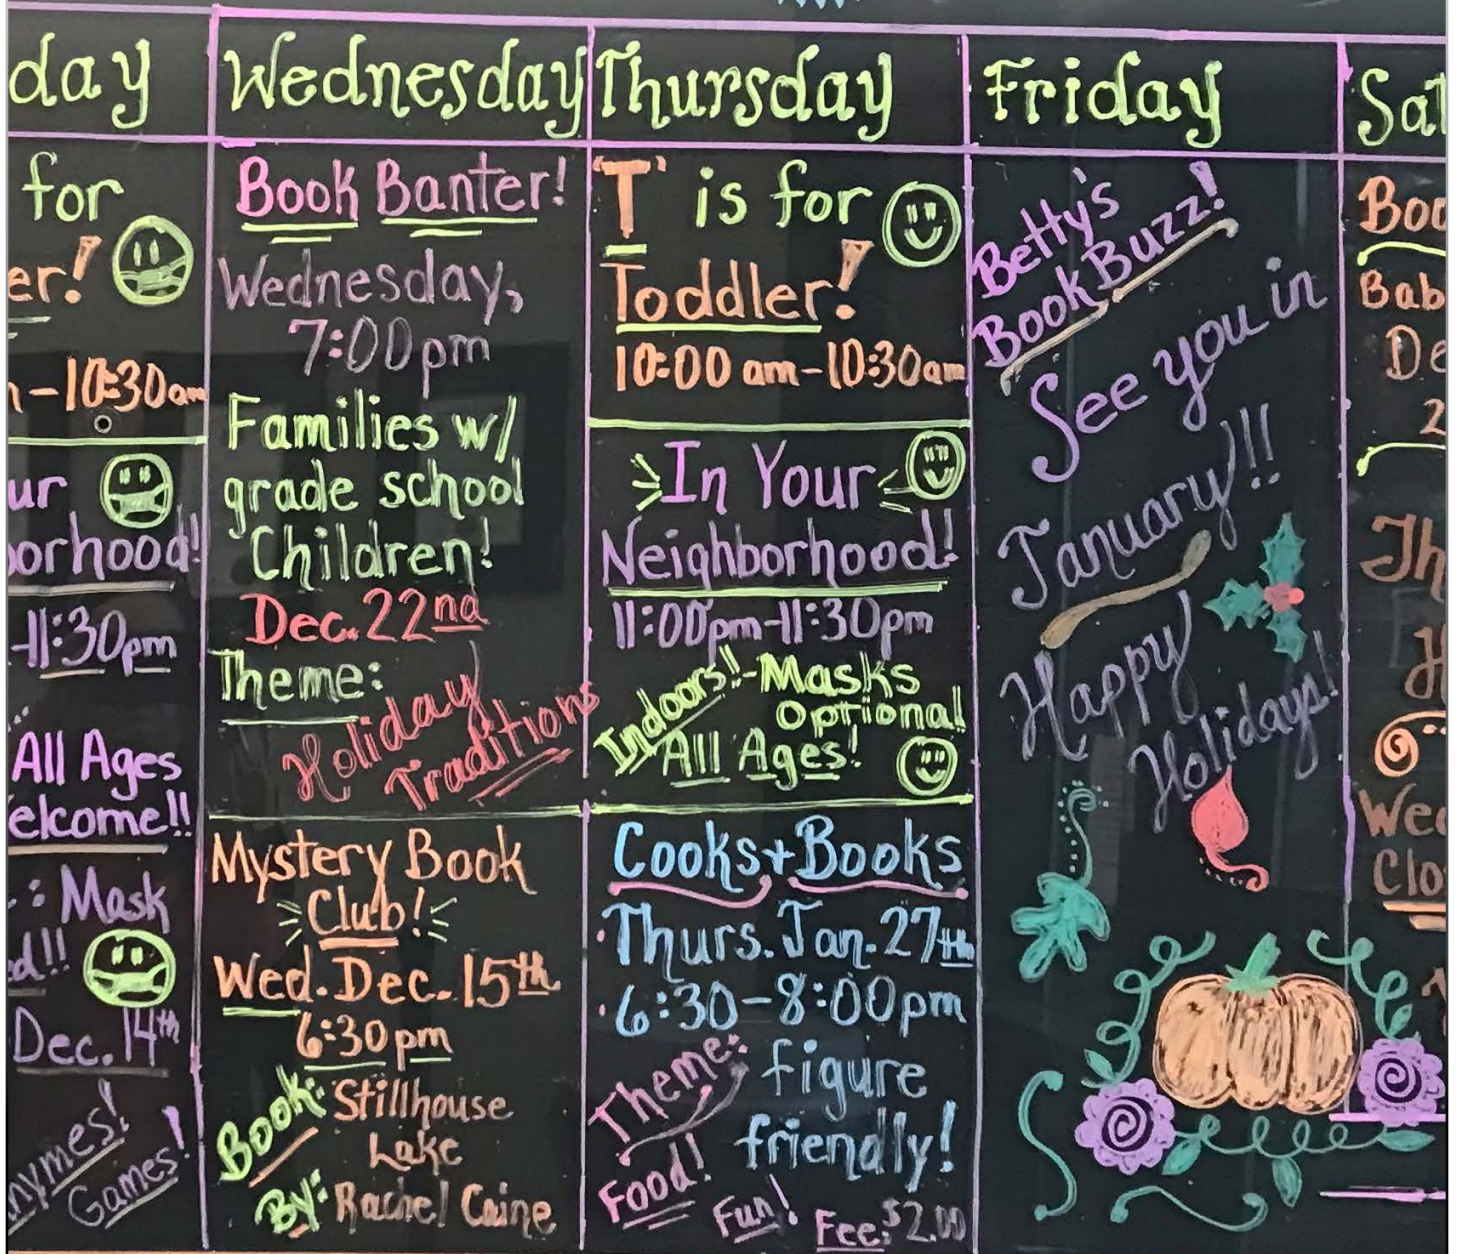 day
for
er!
-10:30am
ur
orhood!
-11:30pm
All Ages
elcome!!
: Mask
d!!
Dec. 14th
hymes!
Games!
Wednesday
Book Banter!
Wednesday,
7:00pm
Families w/
grade school
Children!
Dec. 22nd
Theme:
Holiday
Traditions
Mystery Book
Club!
Wed. Dec. 15th
6:30pm
Book: Stillhouse
Lake
By: Rachel Caine
Thursday
'T' is for
Toddler!
10:00 am-10:30am
In Your
Neighborhood!
11:00pm-11:30pm
Indoors!-Masks
Optional
All Ages!
Cooks+Books
·Thurs. Jan. 27th
·6:30-8:00pm
Theme: figure
friendly!
Food! Fun! Fee: $2.00
Friday
Betty's
Book Buzz!
See you in
January!!
Happy
Holidays!
Sat
Boo
Bab
De
2
Th
H
Wed
Clo